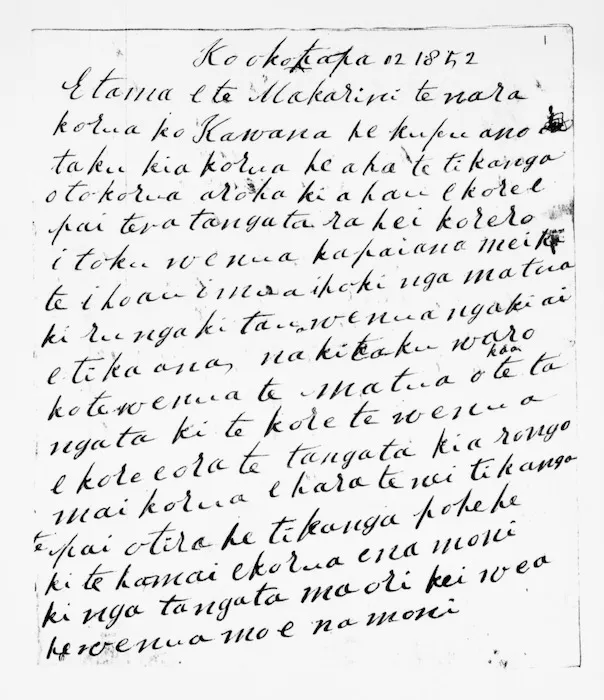 Ko okotapa 12 1852
E tama e te Makarini tenara
korua ko Kawana he kupu ano
taku kia korua he aha te tikanga
o to korua aroha ki ahau e kore e
pai tera tangata ra hei korero
i toku wenua kapaiana mei ki
te i hoau i mua ipoki nga matua
ki runga ki tau wenua ngaki ai
e tika ana, na ki taku waro
ko te wenua te matua o te ta
ngata ki te kore te wenua
e kore e ora te tangata kia rongo
mai korua ehara te nei tikanga
te pai otira he tikanga pohehe
ki te homai e korua ena moni
ki nga tangata maori kei wea
he wenua mo e na moni